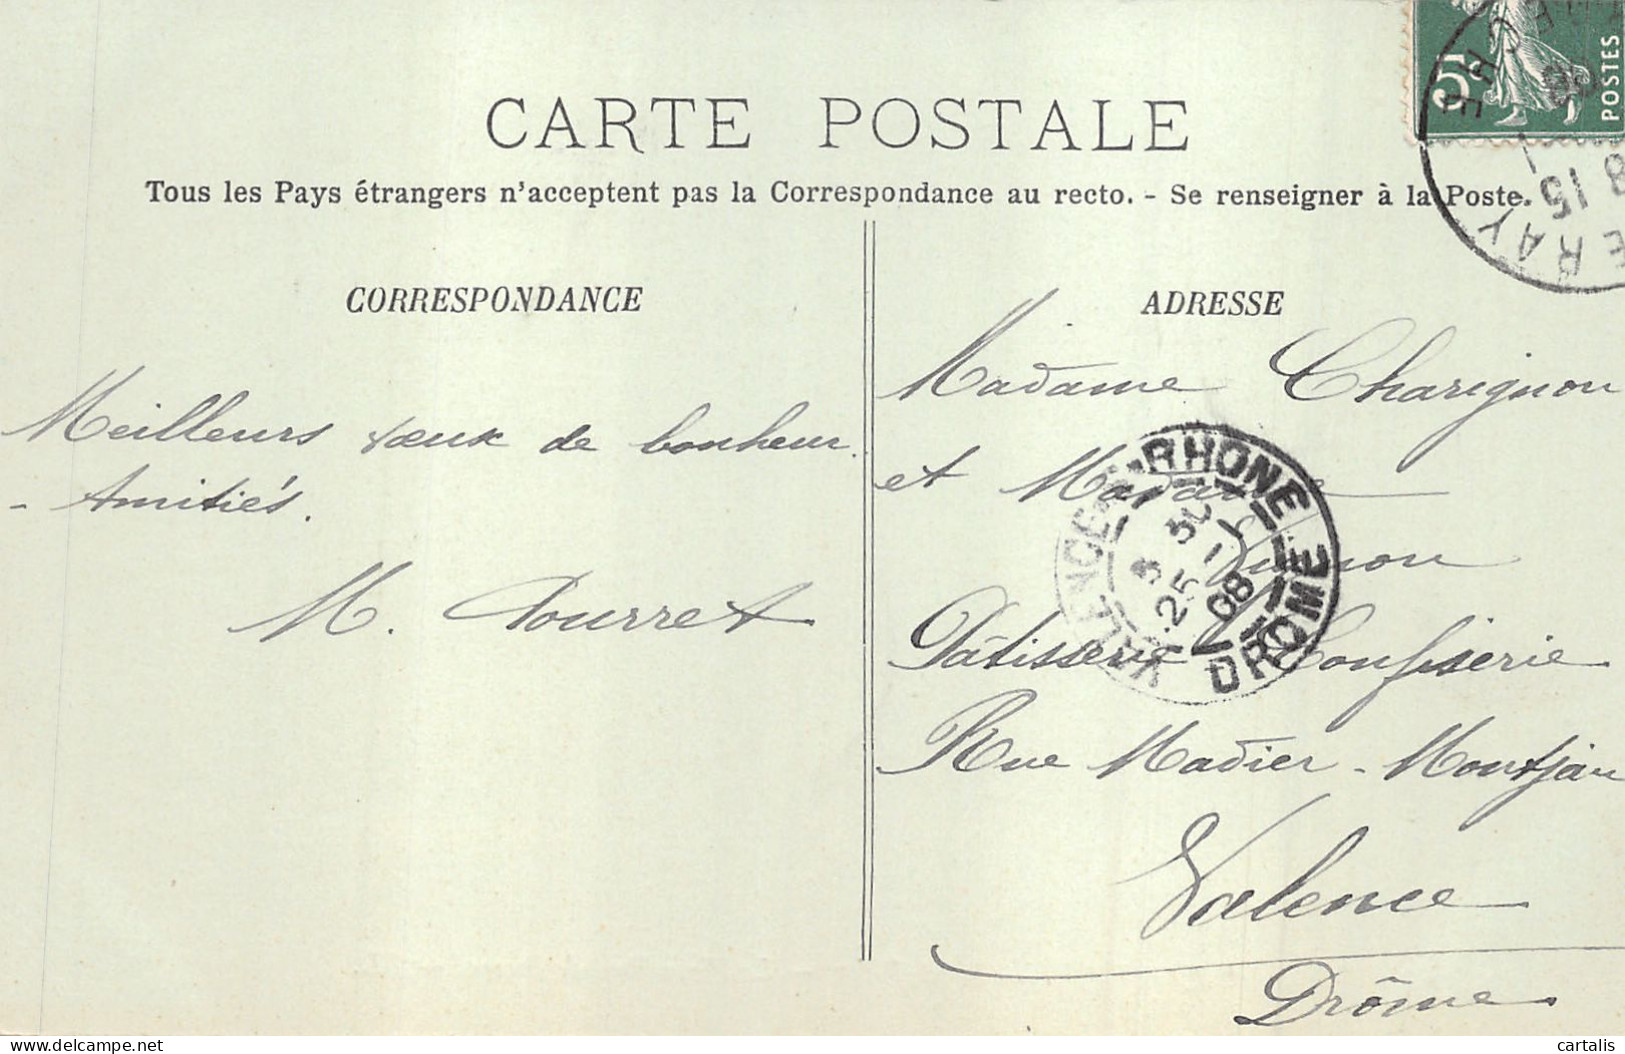 CARTE POSTALE
Tous les Pays étrangers n'acceptent pas la Correspondance au recto. - Se renseigner à la Poste.
CORRESPONDANCE
Meilleurs vœux de bonheur.
- Amitiés.
M. Pourret
ADRESSE
Madame Charignon
et Madame
Pâtisserie Confiserie
Rue Madier - Montjau
Valence
Drôme
5c
POSTES
8 15
ERAY
VALENCE-S-RHONE
DROME
3 30
25 -1
08
delcampe.net
cartalis